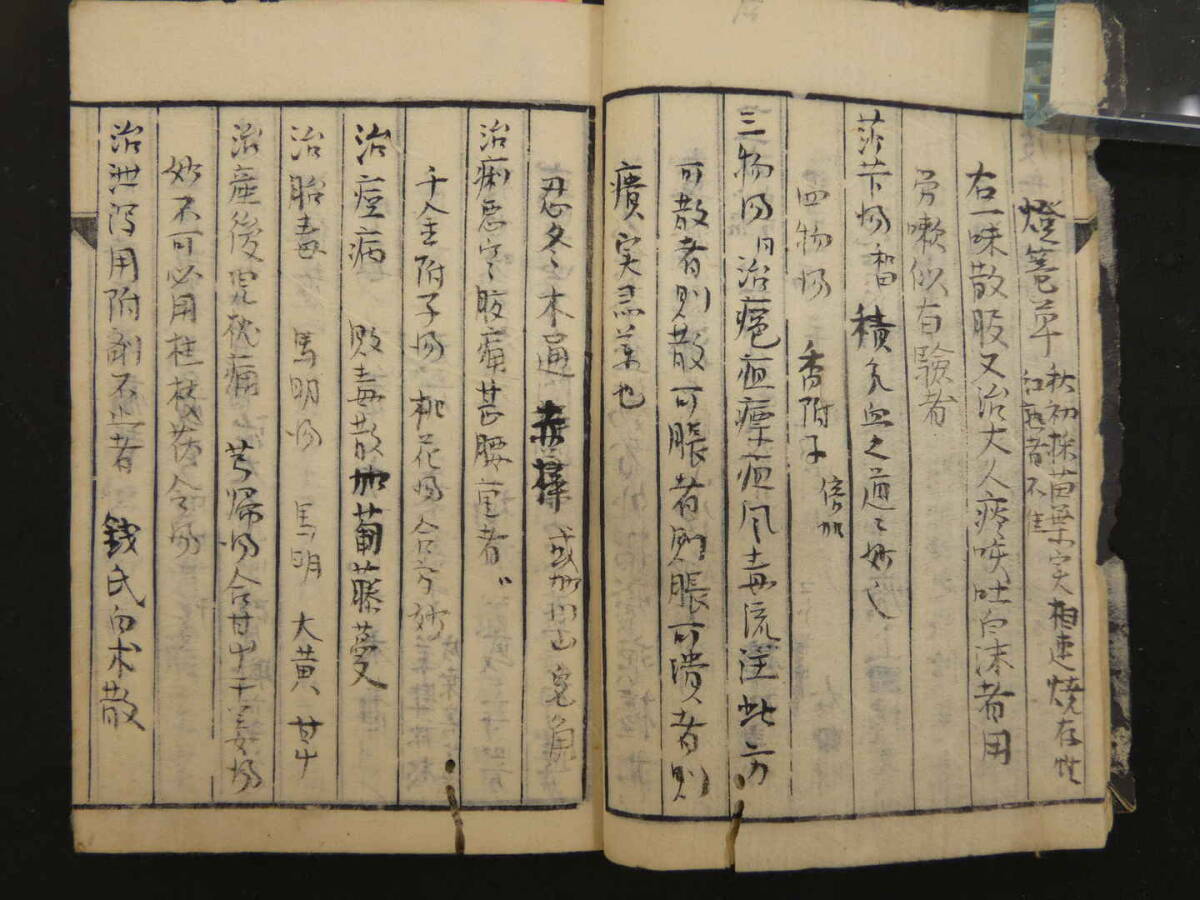 燈篭草 秋初採苗葉実相連焼存性
紅熟者不佳
右一味散服又治大人痰咳吐白沫者用
労嗽似有験者
莎芐湯 和曰 積気血之道之妙也
四物湯 香附子 倍加
三物湯 同治疽癰疽風毒流注此方
可散者則散可脹者則脹可潰者則
潰実良薬也
忍冬 木通 赤檡 或加川山 鬼角
治痢悪寒腹痛甚腰重者
千金附子湯 桃花湯合方妙
治痘病 敗毒散加葡藤蔓
治胎毒 馬明湯 馬明 大黄 甘中
治産後児枕痛 芎帰湯合甘中干姜湯
妙不可必用桂枝茯苓湯
治泄瀉用附剤不止者 銭氏白朮散